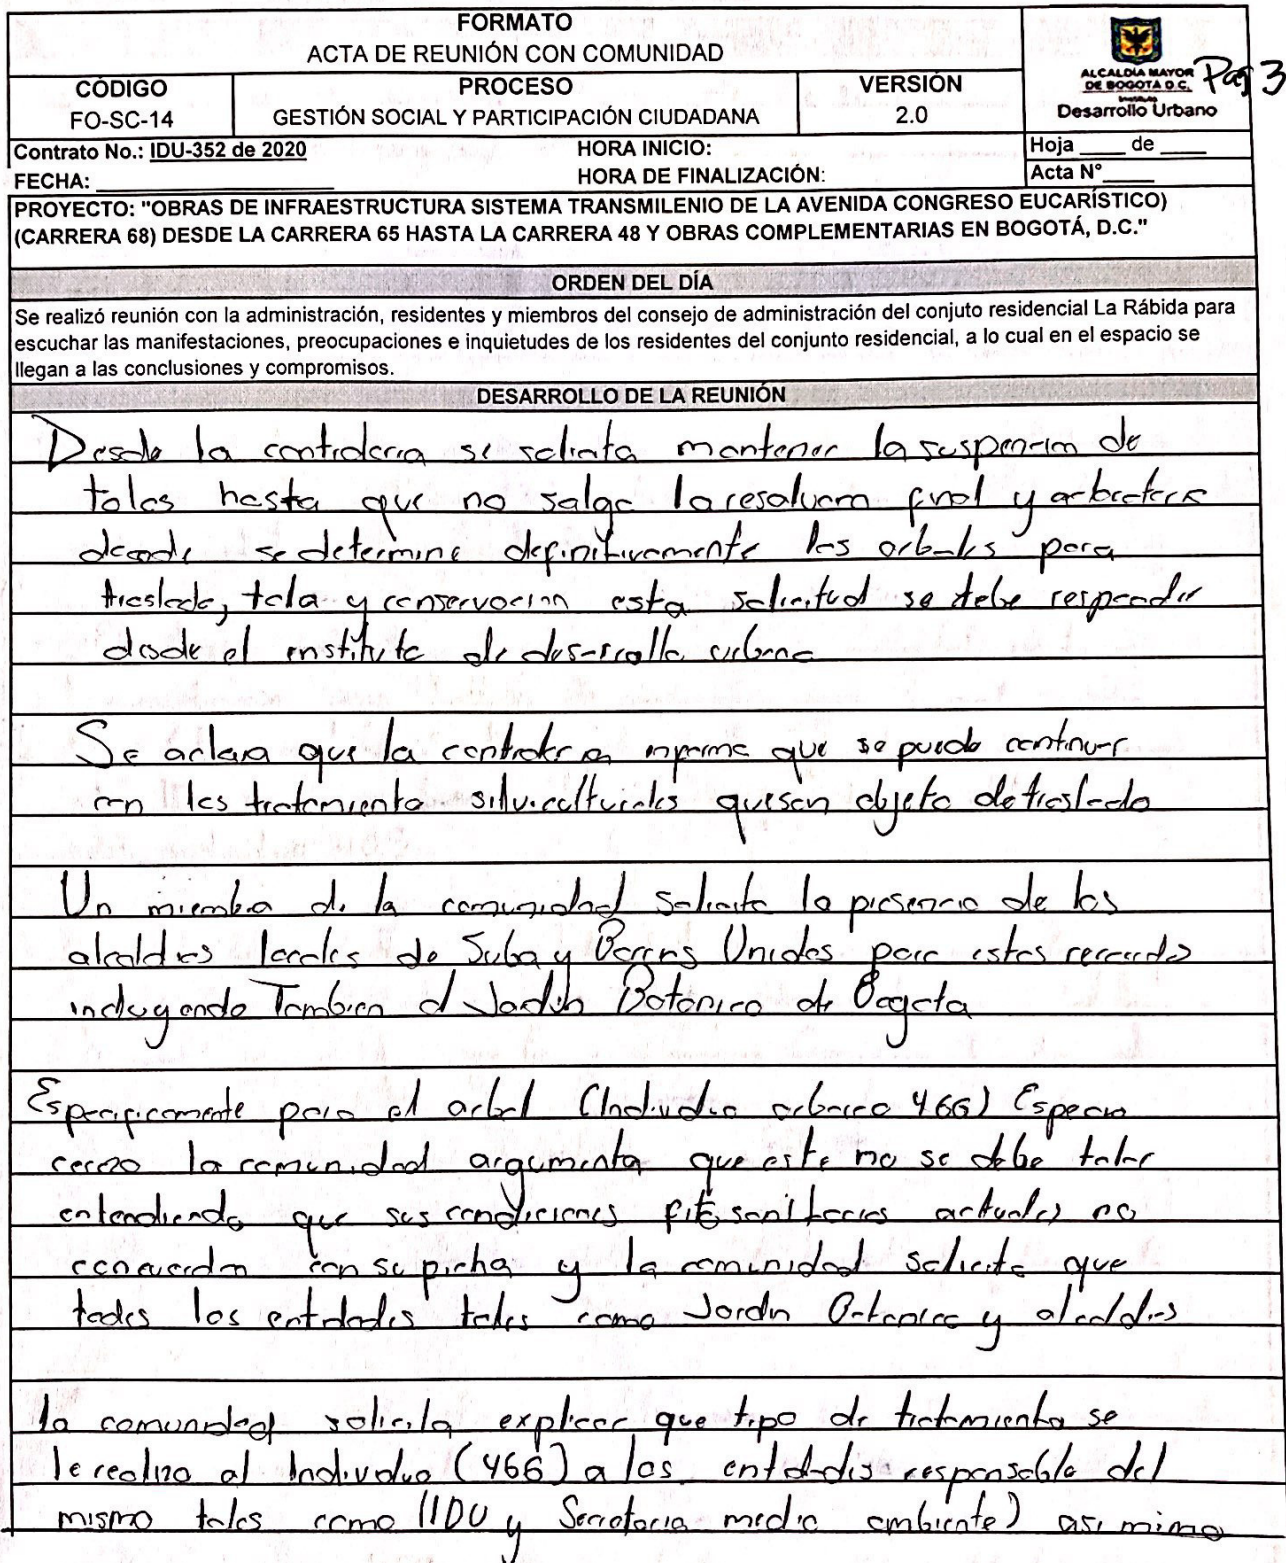 FORMATO
ACTA DE REUNIÓN CON COMUNIDAD
CÓDIGO
FO-SC-14
PROCESO
GESTIÓN SOCIAL Y PARTICIPACIÓN CIUDADANA
VERSIÓN
2.0
ALCALDÍA MAYOR
DE BOGOTÁ D.C.
Instituto
Desarrollo Urbano
Pag 3
Contrato No.: IDU-352 de 2020
HORA INICIO:
Hoja ____ de ____
FECHA: ____
HORA DE FINALIZACIÓN:
Acta N°____
PROYECTO: "OBRAS DE INFRAESTRUCTURA SISTEMA TRANSMILENIO DE LA AVENIDA CONGRESO EUCARÍSTICO)
(CARRERA 68) DESDE LA CARRERA 65 HASTA LA CARRERA 48 Y OBRAS COMPLEMENTARIAS EN BOGOTÁ, D.C."
ORDEN DEL DÍA
Se realizó reunión con la administración, residentes y miembros del consejo de administración del conjuto residencial La Rábida para
escuchar las manifestaciones, preocupaciones e inquietudes de los residentes del conjunto residencial, a lo cual en el espacio se
llegan a las conclusiones y compromisos.
DESARROLLO DE LA REUNIÓN
Desde la contraloria se solicita mantener la suspension de
talas hasta que no salga la resolucion final y
donde se determine definitivamente los arboles para
traslado, tala y conservacion esta solicitud se debe responder
desde el instituto de desarrollo urbano
Se aclara que la contraloria informa que se puede continuar
con los tratamiento silviculturales que son objeto de traslado
Un miembro de la comunidad solicita la presencia de las
alcaldias locales de Suba y Barrios Unidos para estos recorridos
incluyendo Tambien el Jardin Botanico de Bogota
Especificamente para el arbol (Individuo arboreo 466) Especie
cerezo la comunidad argumenta que este no se debe talar
entendiendo que sus condiciones fitosanitarias actuales no
concuerdan con su ficha y la comunidad solicita que
todas las entidades tales como Jardin Botanico y alcaldias
la comunidad solicita explicar que tipo de tratamiento se
le realizo al Individuo (466) a las entidades responsable del
mismo tales como (IDU y Secretaria medio ambiente) asi mimo